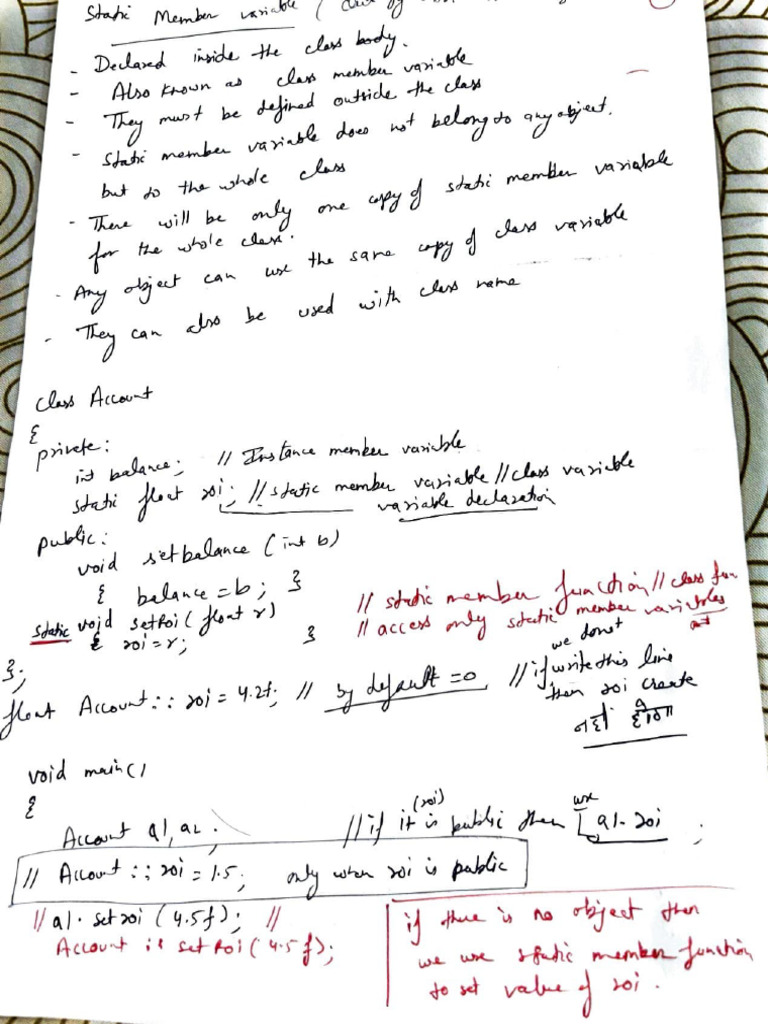 Static Member variable (
- Declared inside the class body.
- Also known as class member variable
- They must be defined outside the class
- Static member variable does not belong to any object.
but to the whole class
- There will be only one copy of static member variable
for the whole class.
- Any object can use the same copy of class variable
- They can also be used with class name
class Account
{
private:
int balance; // Instance member variable
static float roi; // static member variable // class variable
variable declaration
public:
void setbalance (int b)
{ balance = b; }
static void setRoi (float r) // static member function // class fun
{ roi = r; } // access only static member variables
};
float Account :: roi = 4.2f; // by default = 0 // if we donot write this line
then roi create
नहीं होगा
void main()
{
Account a1, a2; // if it (roi) is public then use a1. roi ;
// Account :: roi = 1.5; only when roi is public
// a1. setroi (4.5f); //
Account :: setRoi (4.5f);
if there is no object then
we use static member function
to set value of roi.